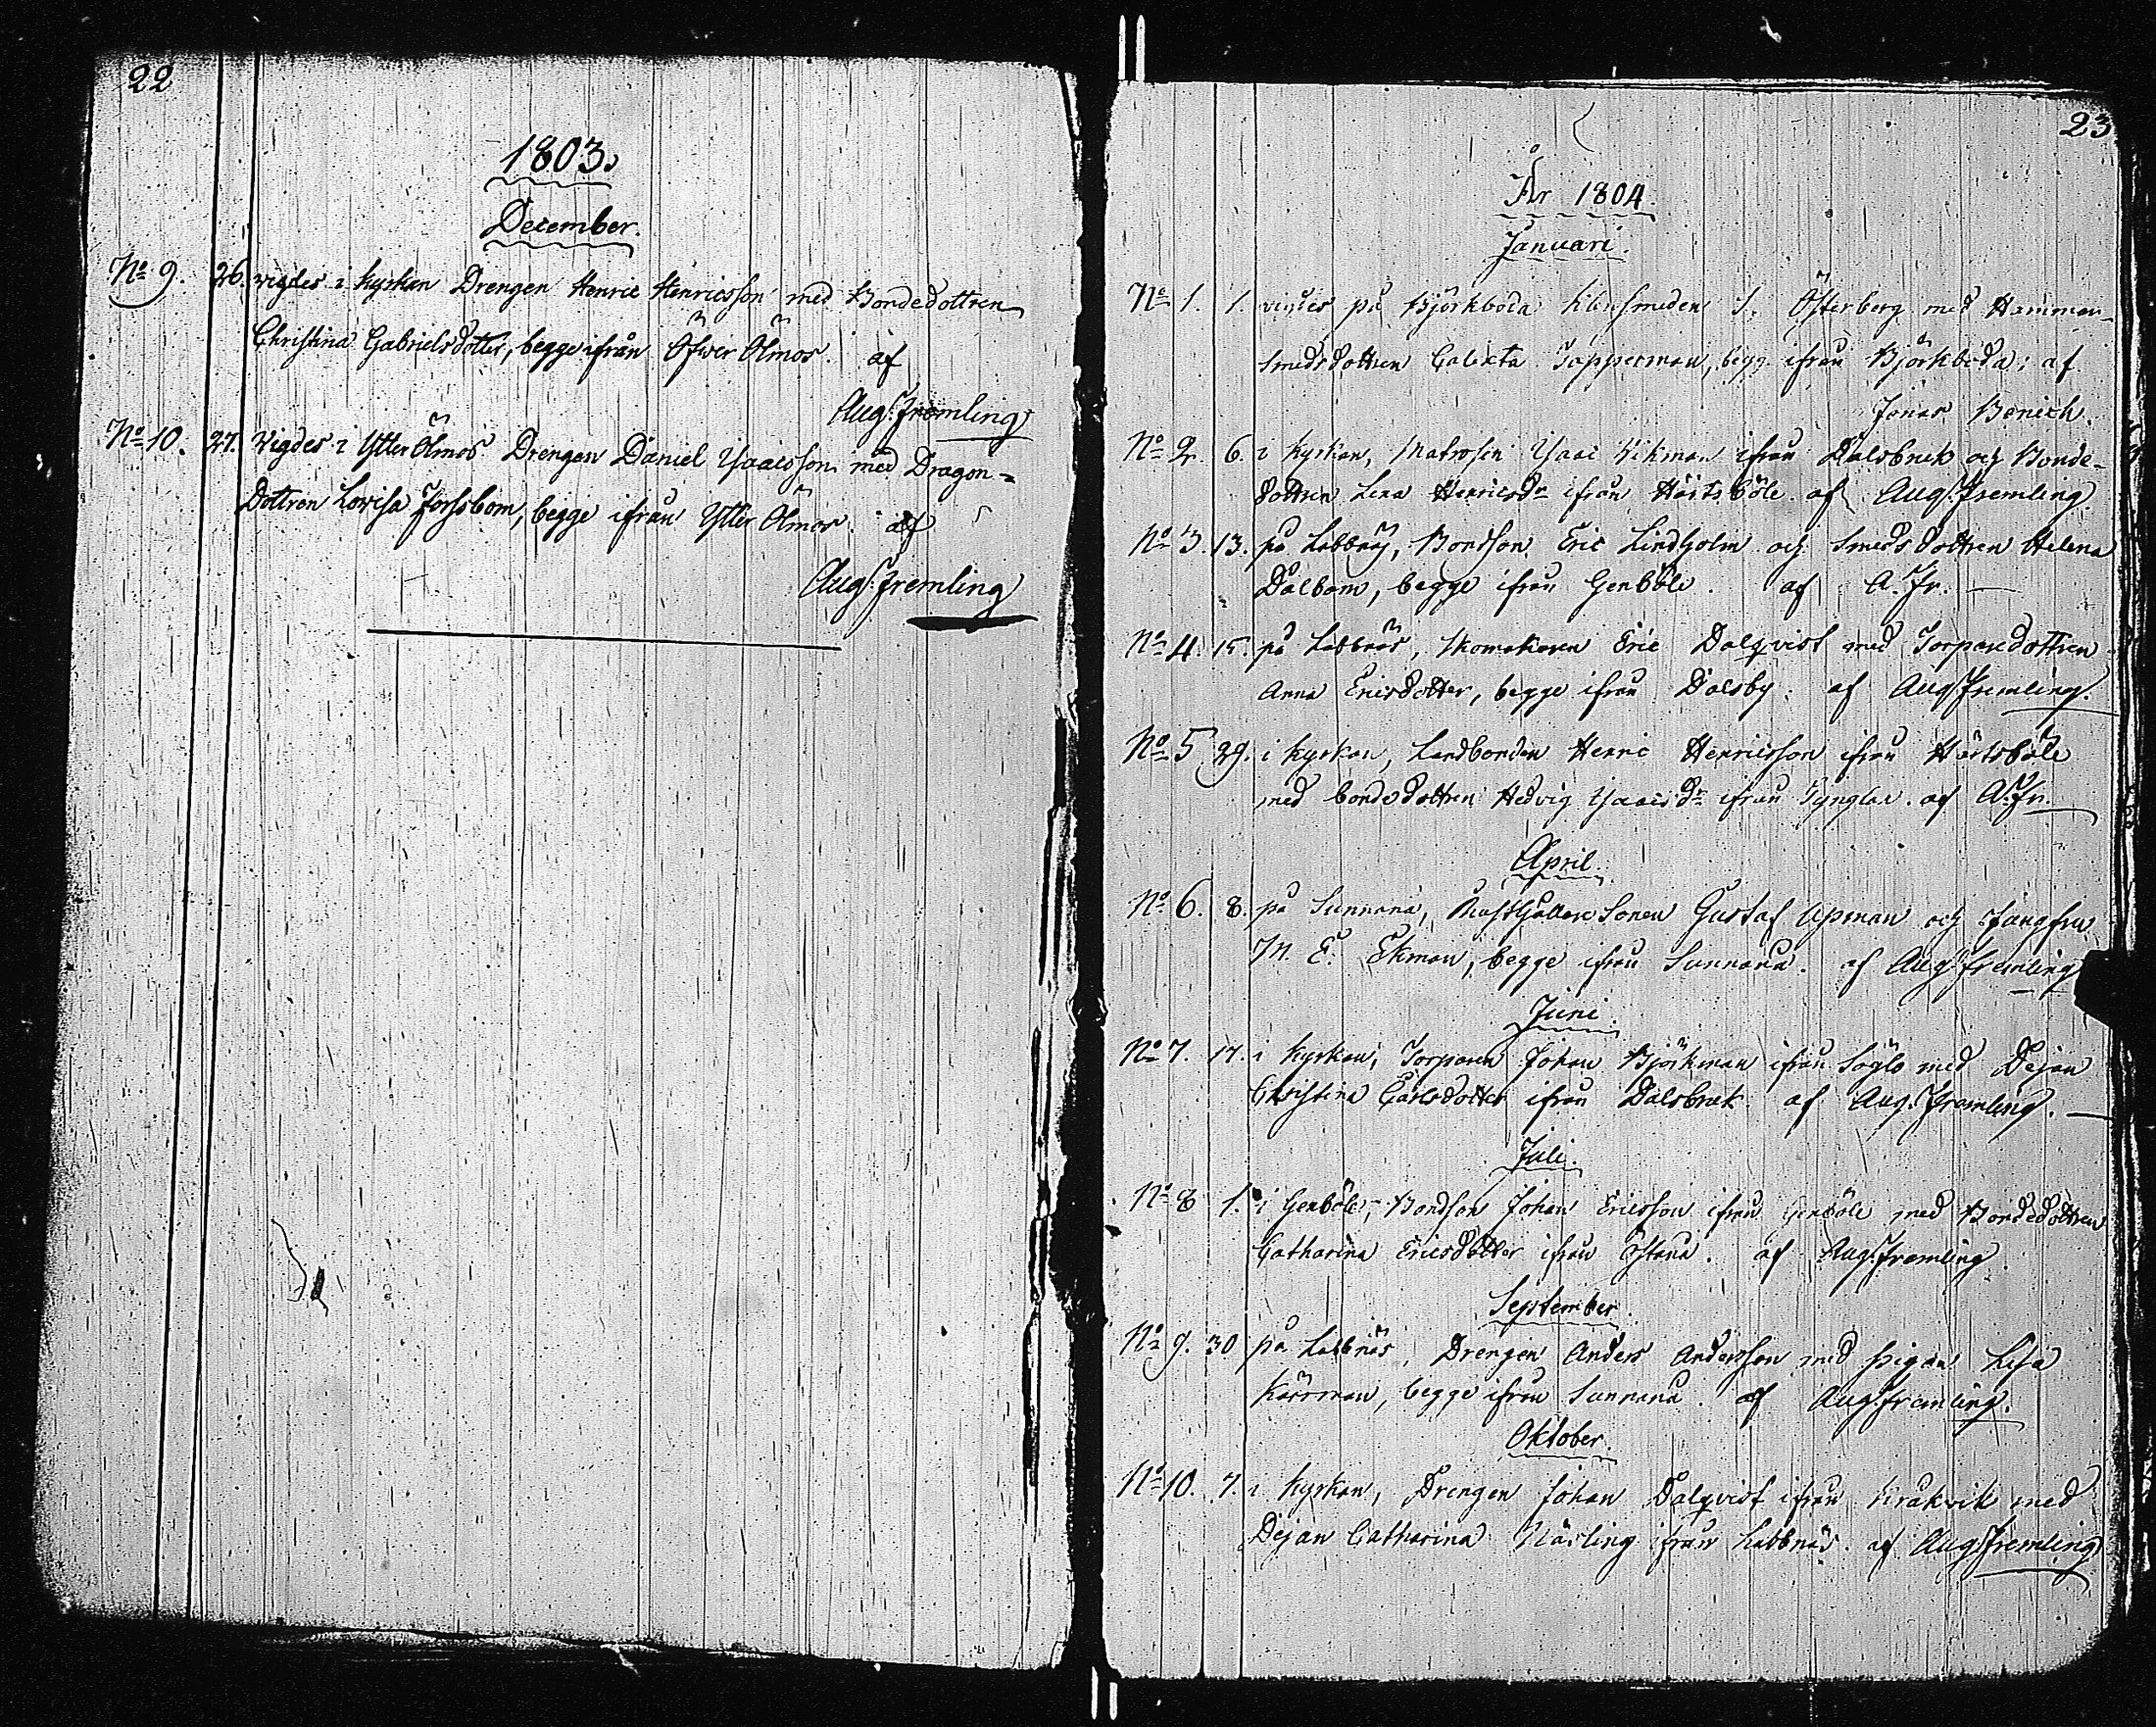 22
1803.
December.
No 9. 26. vigdes i Kyrkan Drengen Henric Henricsson med Bondedottren
Christina Gabrielsdotter, begge ifrån Öfwer Ölmos. af
Aug: Fremling
No 10. 27. Vigdes i Ytter Ölmos Drengen Daniel Isaacsson med Dragon=
Dottren Lovisa Forssbom, begge ifrån Ytter Ölmos. af
Aug: Fremling
23
År 1804.
Januari.
No 1. 1. vigdes på Björkboda Klensmeden J. Österberg med Hammar-
smedsdottren Calixta Tapperman, begg. ifrån Björkboda; af
Jonas Bonich.
No 2. 6. i Kyrkan, Matrosen Isaac Vikman ifrån Dalsbruk och Bonde-
dottren Lena Henricsdr ifrån Hertsböle af Aug: Fremling.
No 3. 13. på Labbnäs, Bondson Eric Lindholm och Smedsdottren Helena
Dalbom, begge ifrån Genböle. af A. Fr.
No 4. 15. på Labbnäs, Skomakaren Eric Dalqvist med Torparedottren
Anna Ericsdotter, begge ifrån Dalsby. af Aug: Fremling.
No 5 29. i Kyrkan, Landbonden Henric Henricsson ifrån Hertsböle
med bondedottren Hedvig Isaacsdr ifrån Tynglax. af A: Fr.
April.
No 6. 8. på Sunnanå, Gustaf Apman och Jungfru
M. E. Ekman, begge ifrån Sunnanå. af Aug: Fremling
Juni.
No 7. 17. i Kyrkan, Torparen Johan Björkman ifrån Söglo med Dejan
Christina Carlsdotter ifrån Dalsbruk af Aug. Fremling.
Juli.
No 8 1. i Genböle, Bondson Johan Ericsson ifrån Genböle med Bondedottren
Catharina Ericsdotter ifrån Östanå. af Aug: Fremling
September.
No 9. 30 på Labbnäs, Drengen Anders Andersson med pigan Lisa
Kärrman, begge ifrån Sunnanå. af Aug: Fremling.
Oktober.
No 10. 7. i Kyrkan, Drengen Johan Dalqvist ifrån Kråkvik med
Dejan Catharina Näsling ifrån Labbnäs. af Aug: Fremling